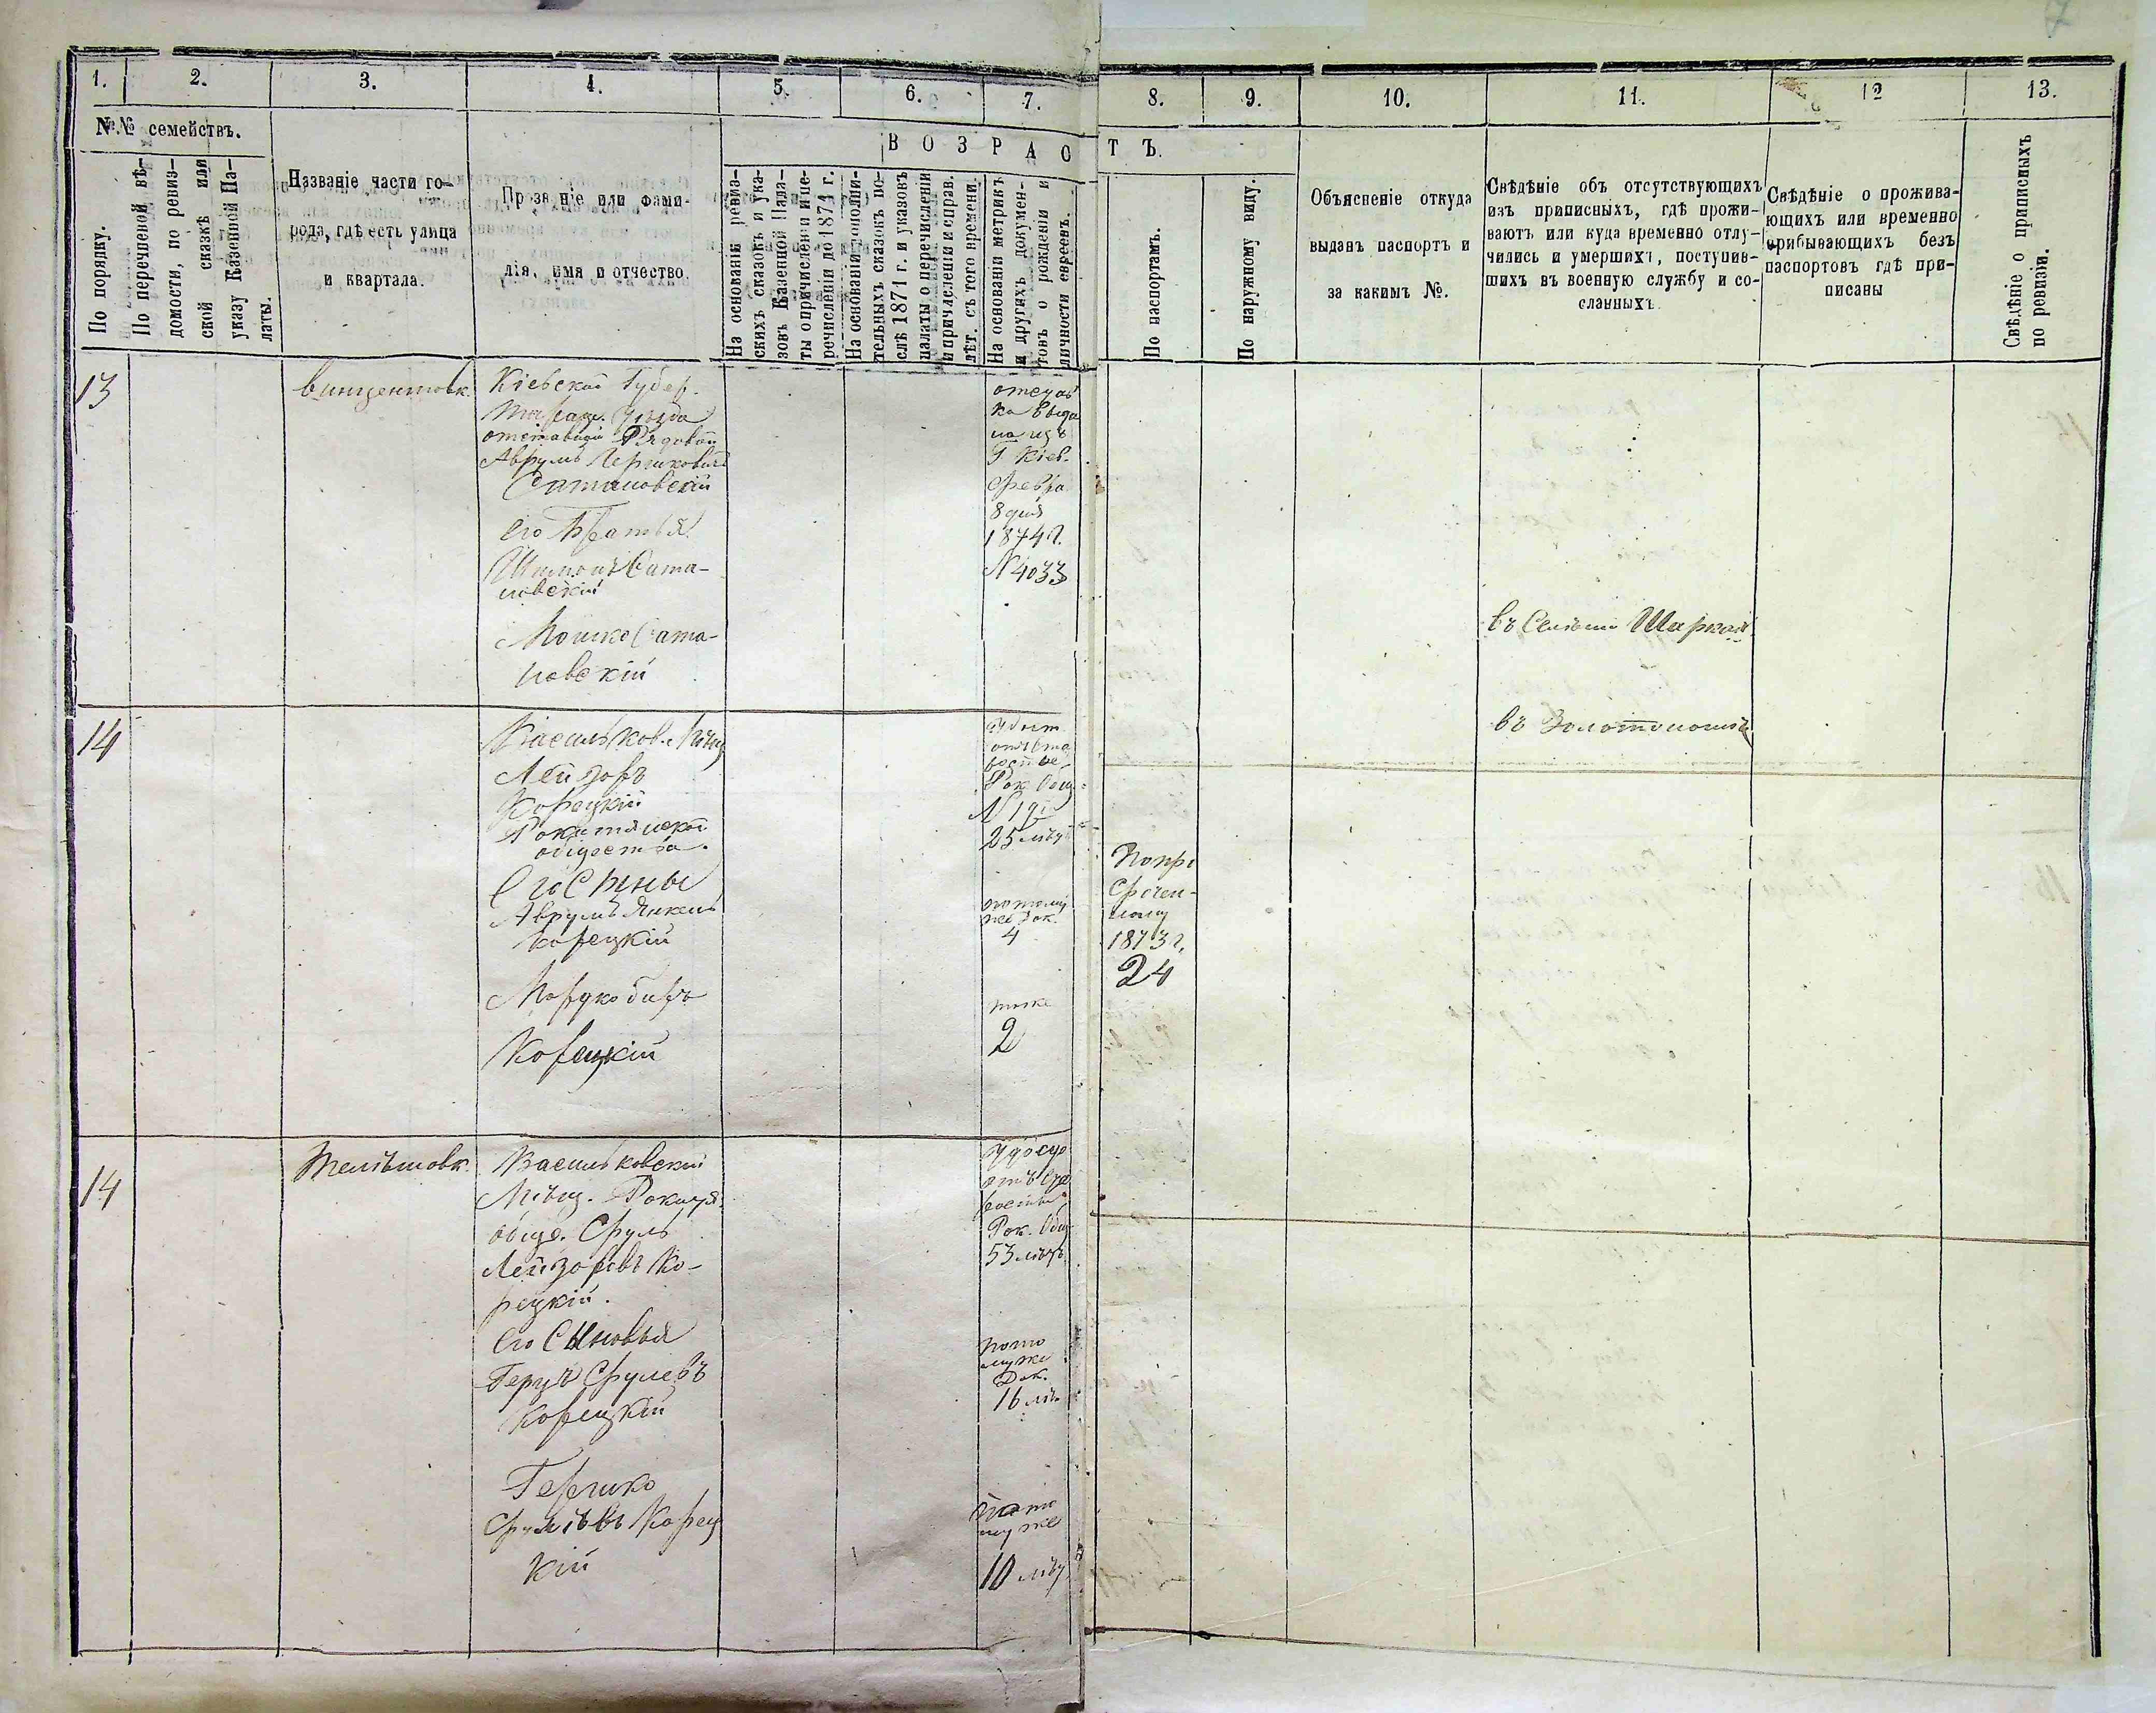 1.
2.
3.
4.
5.
6.
7.
8.
9.
10.
11.
12
13.
№№ семействъ.
По порядку.
По перечневой вѣ-
домости, по ревиз-
ской сказкѣ или
указу Казенной Па-
латы.
Названіе части го-
рода, гдѣ есть улица
и квартала.
Прозваніе или фами-
лія, имя и отчество.
ВОЗРАСТЪ.
На основаніи ревиз-
скихъ сказокъ и ука-
зовъ Казенной Пала-
ты о причисленіи и пе-
речисленіи до 1871 г.
На основаніи дополни-
тельныхъ сказокъ по-
слѣ 1871 г. и указовъ
палаты о перечисленіи
и причисленіи и справ.
лѣт. съ того времени.
На основаніи метрикъ
и другихъ докумен-
товъ о рожденіи и
личности евреевъ.
По паспортамъ.
По наружному виду.
Объясненіе откуда
выданъ паспортъ и
за какимъ №.
Свѣдѣніе объ отсутствующихъ
изъ приписныхъ, гдѣ прожи-
ваютъ или куда временно отлу-
чились и умершихъ, поступив-
шихъ въ военную службу и со-
сланныхъ
Свѣдѣніе о прожива-
ющихъ или временно
прибывающихъ безъ
паспортовъ гдѣ при-
писаны
Свѣдѣніе о приписныхъ
по ревизіи.
13
винцентовк.
Кіевской Губер.
Таращ. Уѣзда
отставной Рядовой
Аврумъ Гершковичъ
Сатановскій
его Братья
Шимонъ Сата-
новскій
Мошко Сата-
новскій
отстав
ка выда
на изъ
Г Кіев.
Февра
8 дня
1874 г.
№ 4033
въ Золотоноши
14
Васильков. Мѣщ
Лейзоръ
Корецкій
Рокитянскаго
общества.
Его Сыны
Аврумъ Янкель
Корецкій
Мордко
Корецкій
Рок. Общ
25 лѣтъ
потому
же док.
4
тоже
2
Попро
срочен-
ному
1873 г.
24
14
Васильковскій
Мѣщ. Рокитя.
обще. Сруль
Лейзоровъ Ко-
рецкій.
его Сыновья
Герцъ Срулевъ
Корецкій
Гершко
Срулевъ Корец
кій
Рок. Общ
53 лѣтъ
пото
муже
Док.
16 лѣ
пото
муже
10 лѣт